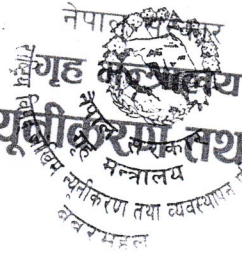 नेपाल सरकार
गृह मन्त्रालय
न्यूनीकरण तथ
नेपाल सरकार
गृह मन्त्रालय
न्यूनीकरण तथा व्यवस्थापन
बबरमहल